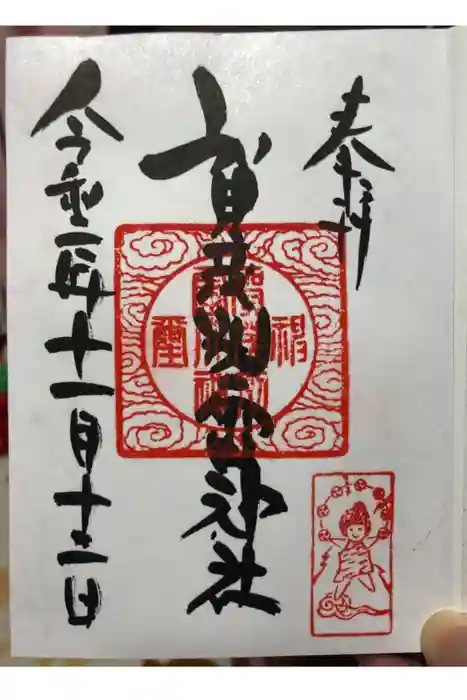 奉拝
賀茂別雷神社
令和二年十一月十二日